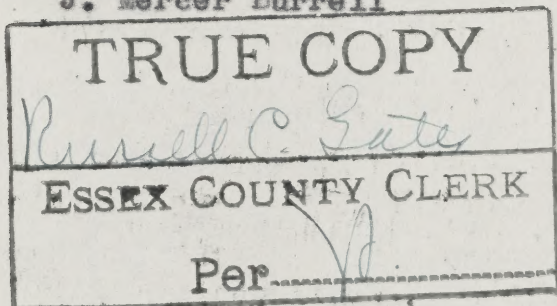 J. Mercer Burrell
TRUE COPY
Russell C. Gates
ESSEX COUNTY CLERK
Per